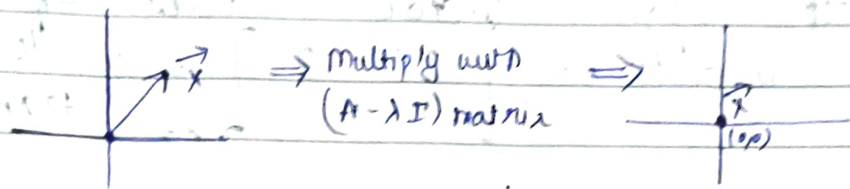 x⃗ ⇒ Multiply with ⇒
(A - λI) matrix
x⃗
(0,0)